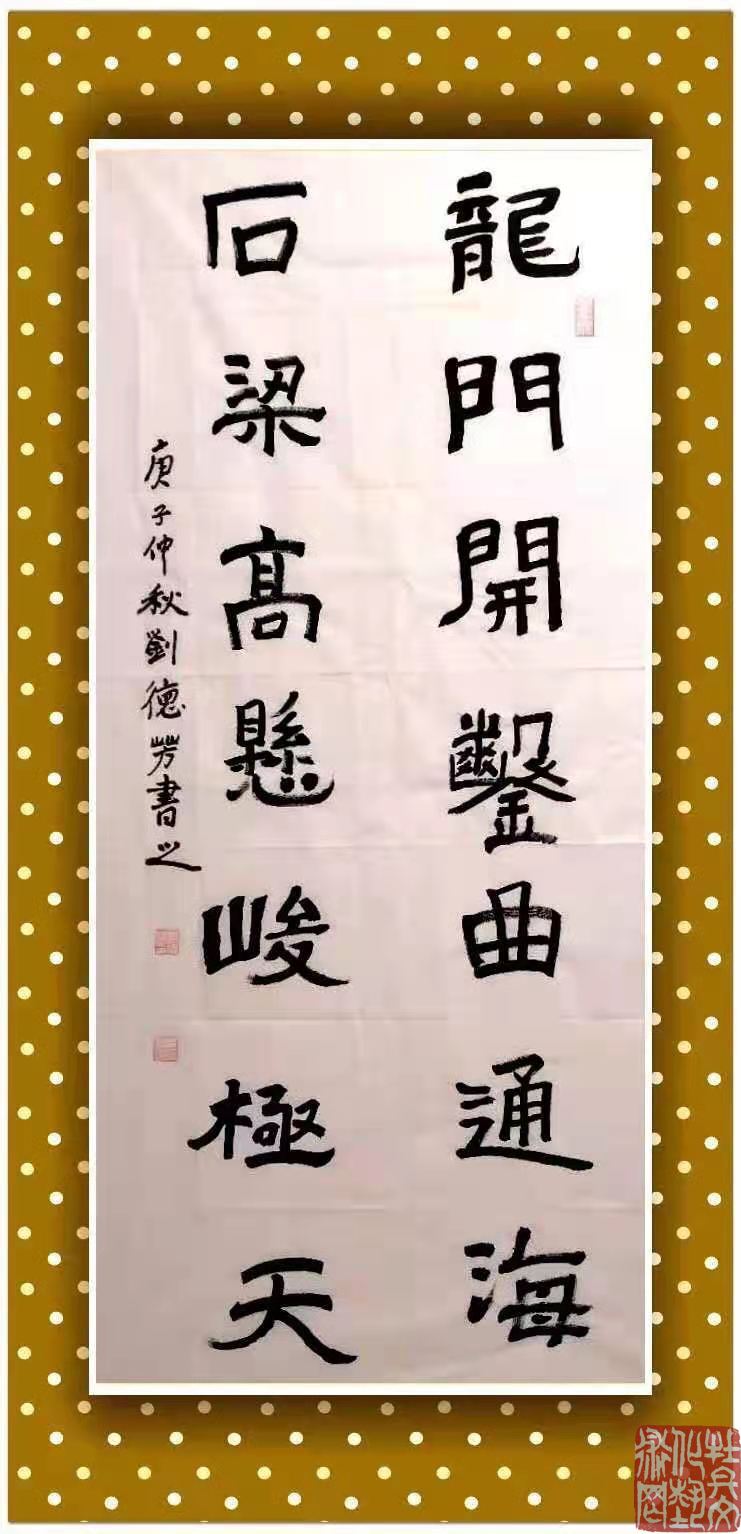 龍門開鑿曲通海
石梁高懸峻極天
庚子仲秋劉德芳書之